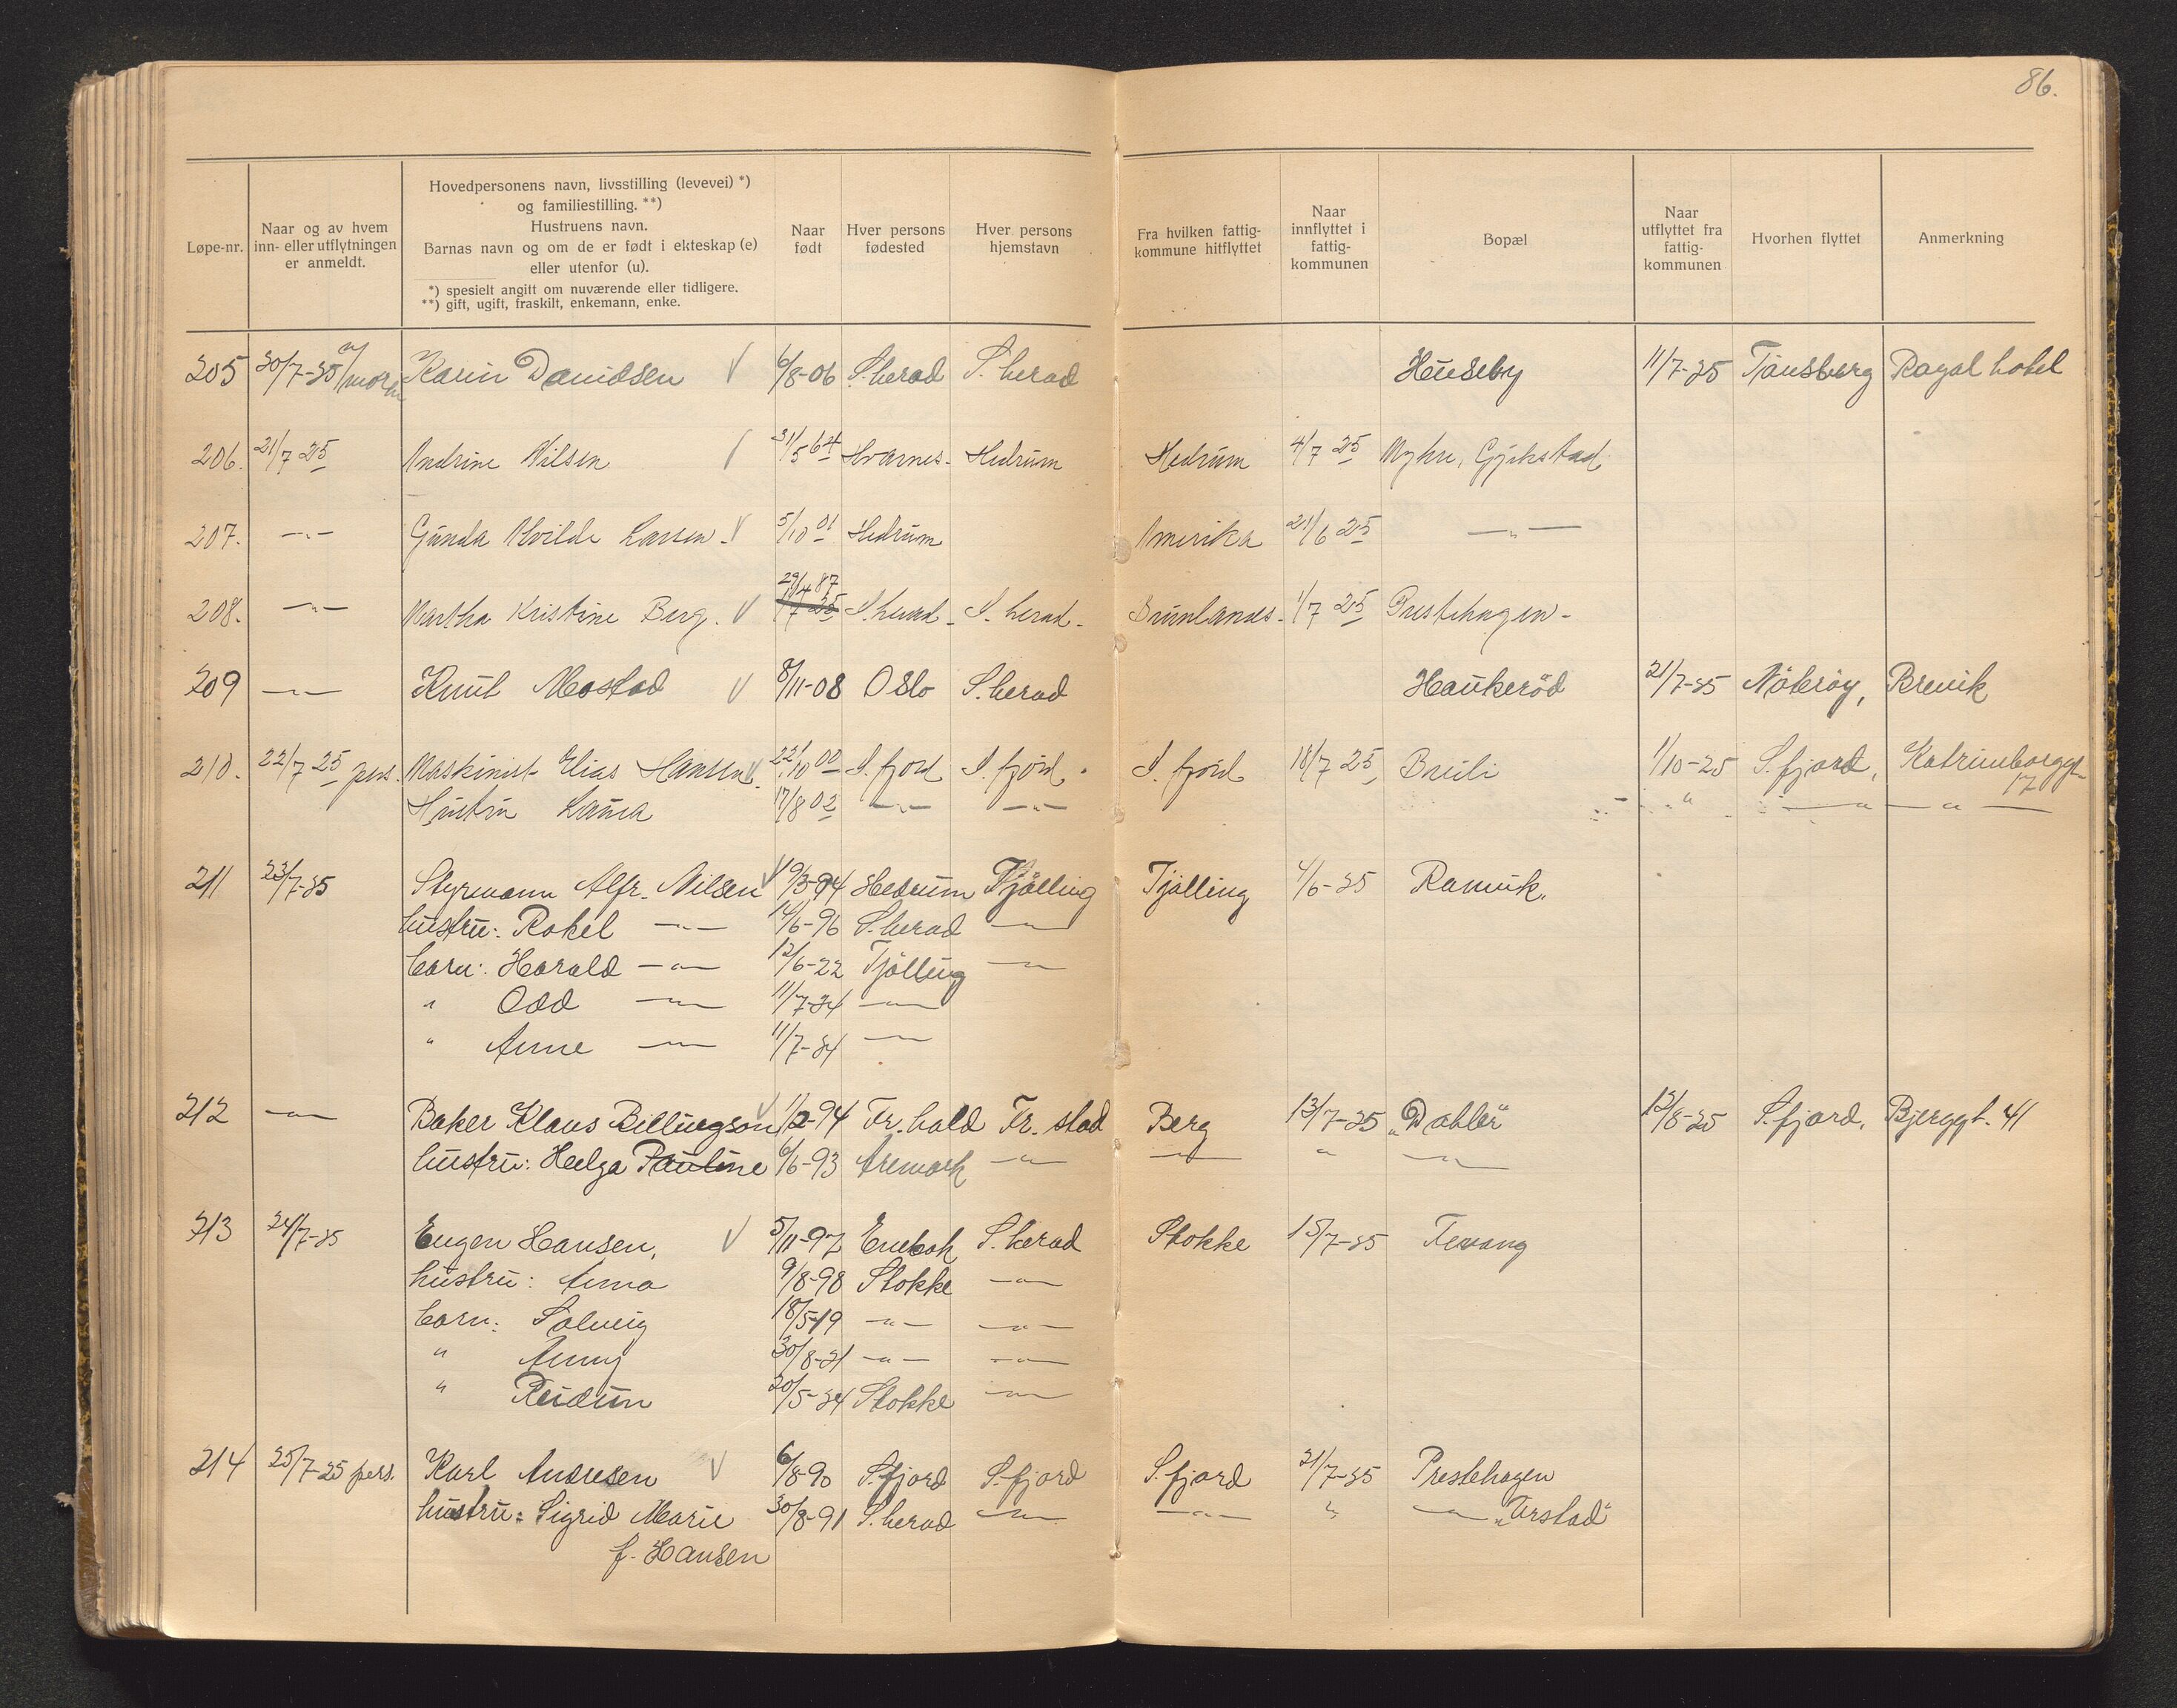 86.
Løpe-nr. Naar og av hvem inn- eller utflytningen er anmeldt. Hovedpersonens navn, livsstilling (levevei) *) og familiestilling. **) Hustruens navn. Barnas navn og om de er født i ekteskap (e) eller utenfor (u). *) spesielt angitt om nuværende eller tidligere. **) gift, ugift, fraskilt, enkemann, enke. Naar født Hver persons fødested Hver persons hjemstavn Fra hvilken fattig-kommune hitflyttet Naar innflyttet i fattig-kommunen Bopæl Naar utflyttet fra fattig-kommunen Hvorhen flyttet Anmerkning
205 20/7-25 Karin Davidsen 6/8-06 S. herad S. herad Huseby 11/7-25 Tønsberg Royal hotel
206. 21/7 25 Andrine Nilsen 31/5 64 Hvarnes - Hedrum Hedrum 4/7 25 Myhre, Gjekstad
207. -"- Gunda Alvilde Larsen. 5/10 01 Hedrum Amerika 21/6 25 -"-
208. -"- Martha Kristine Berg. 29/4 87 S. herad - S. herad - Brunlanes - 1/7 25 Prestehagen -
209 -"- Knut Mostad 8/11-08 Oslo S. herad Haukerød 21/7-25 Nøterøy, Brevik
210. 22/7 25 pers. Maskinist Elias Hansen. 22/10 00 S. fjord S. fjord S. fjord 18/7 25 Bruli 1/10-25 S. fjord, Katrineborggt. 17
Hustru Laura 17/8 02 -"- -"- " -"- -"-
211 23/7-25 Styrmann Alfr. Nilsen 9/3-94 Hedrum Tjølling Tjølling 4/6-25 Ramvik.
hustru: Rakel -"- 14/6-96 S. herad -"-
barn: Harald -"- 12/6-22 Tjølling -"-
" Odd -"- 11/7-24 -"-
" Anne -"- 11/7-24 -"-
212 -"- Baker Klaus Billingson 1/2-94 Fr. hald Fr. stad Berg 13/7-25 "Dahler" 12/8-25 S. fjord, Bjerggt. 41
hustru: Helga Pauline 6/6-93 Aremark -"- -"- " -"-
213 24/7-25 Eugen Hansen, 5/11-97 Enebak S. herad Stokke 15/7-25 Fevang
hustru: Anna 9/8-98 Stokke -"-
barn: Solveig 18/5-19 -"- -"-
" Anny 30/8-21 -"- -"-
" Reidun 20/5-24 Stokke -"-
214 25/7-25 pers. Karl Andresen 6/8-90 S. fjord S. fjord S. fjord 21/7-25 Prestehagen
hustru: Sigrid Marie 30/8-91 S. herad -"- -"- " -"- "Årstad"
f. Hansen